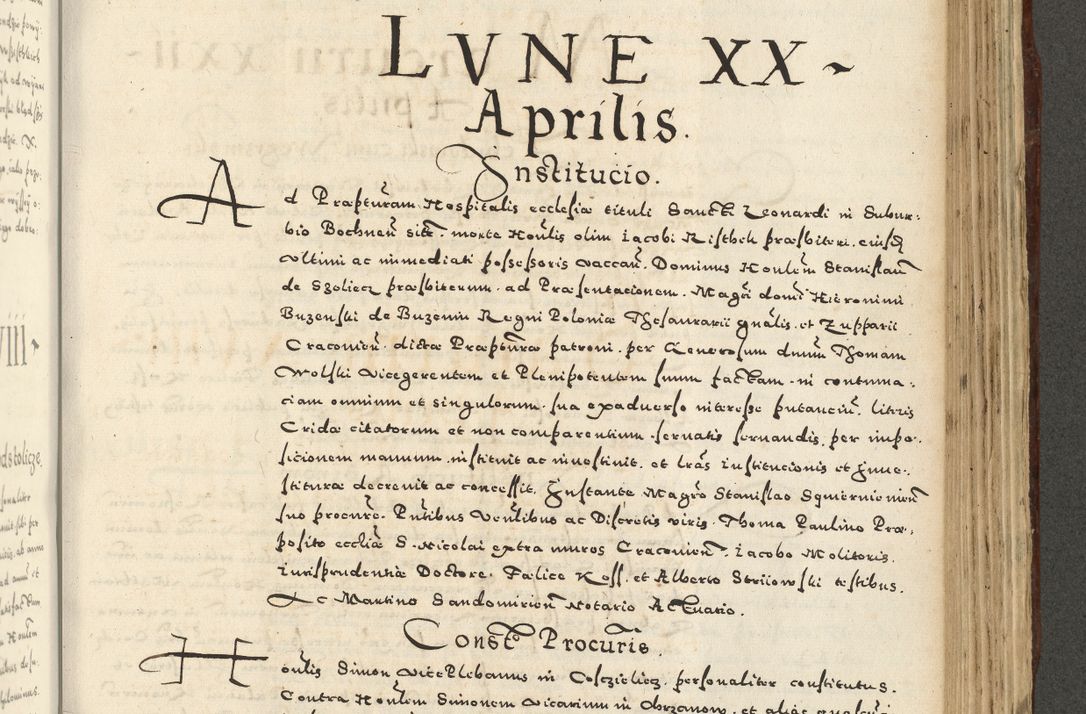 LVNE XX
Aprilis.
Institucio.
Ad Præpturam Hospitalis ecclesiæ tituli Sancti Leonardi in Subur:
bio Bochnen̄ site. morte Honlis olim Iacobi Risthek præsbiteri. eiusq̨
vltimi ac immediati possessoris vaccan̄. Dominus Honlem̄ Stanislaū
de Szoliecz præsbiterum. ad Præsentacionem. Magci domi Hieronimi
Buzenski de Buzenin Regni Poloniæ Thesaurarii gnalis. et Zupparii
Craconien̄. dictæ Præptūræ patroni. per Generosum dnum̄ Thomam
Wolski vicegerentem et Plenipotentem suum factam. in contuma:
ciam omnium et singulorum. sua exaduerso interesse putanciū. literis
Cridæ citatorum et non comparentium. seruatis seruandis. per impo:
sicionem manuum. instituit ac inuestiuit. et lrās Institucionis et Inue:
stituræ decreuit ac concessit. Instante Magrō Stanislao Squiernieuien̄
suo procure. Pntibus Venlibus ac Discretis viris. Thoma Paulino Præ:
posito eccliæ S. Nicolai extra muros Craconien̄. Iacobo Molitoris.
iurisprudentiæ Doctore. Fælice Koss. et Alberto Strijowski testibus.
Ac Martino Sandomirien̄ Notario Actuario.
Const Procuris.
Honlis Simon vicePlebanus in Coscziliecz. personaliter constitutus.
Contra Honlem Simonem vicarium in Chrzanow. et alias quascūq